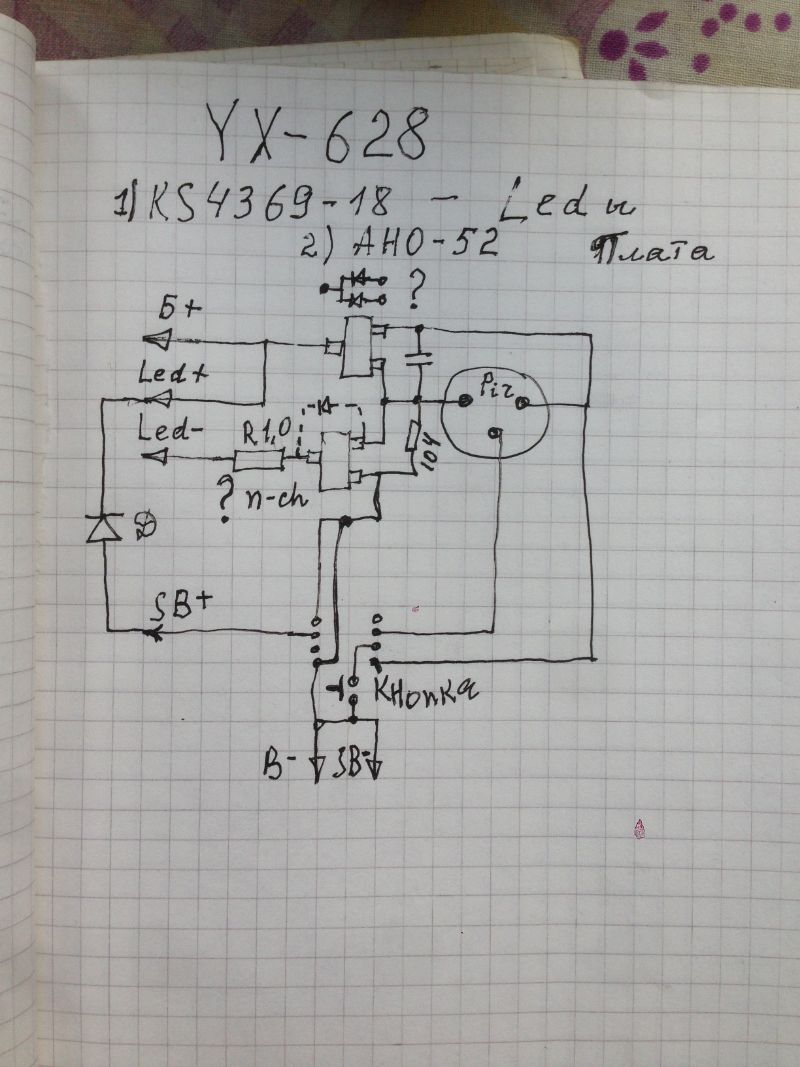 YX-628
1) KS4369-18 - Led и
Плата
2) AHO-52
?
Б+
Led+
Led-
R1,0
Pir
104
? n-ch
D
SB+
Кнопка
B-
SB-